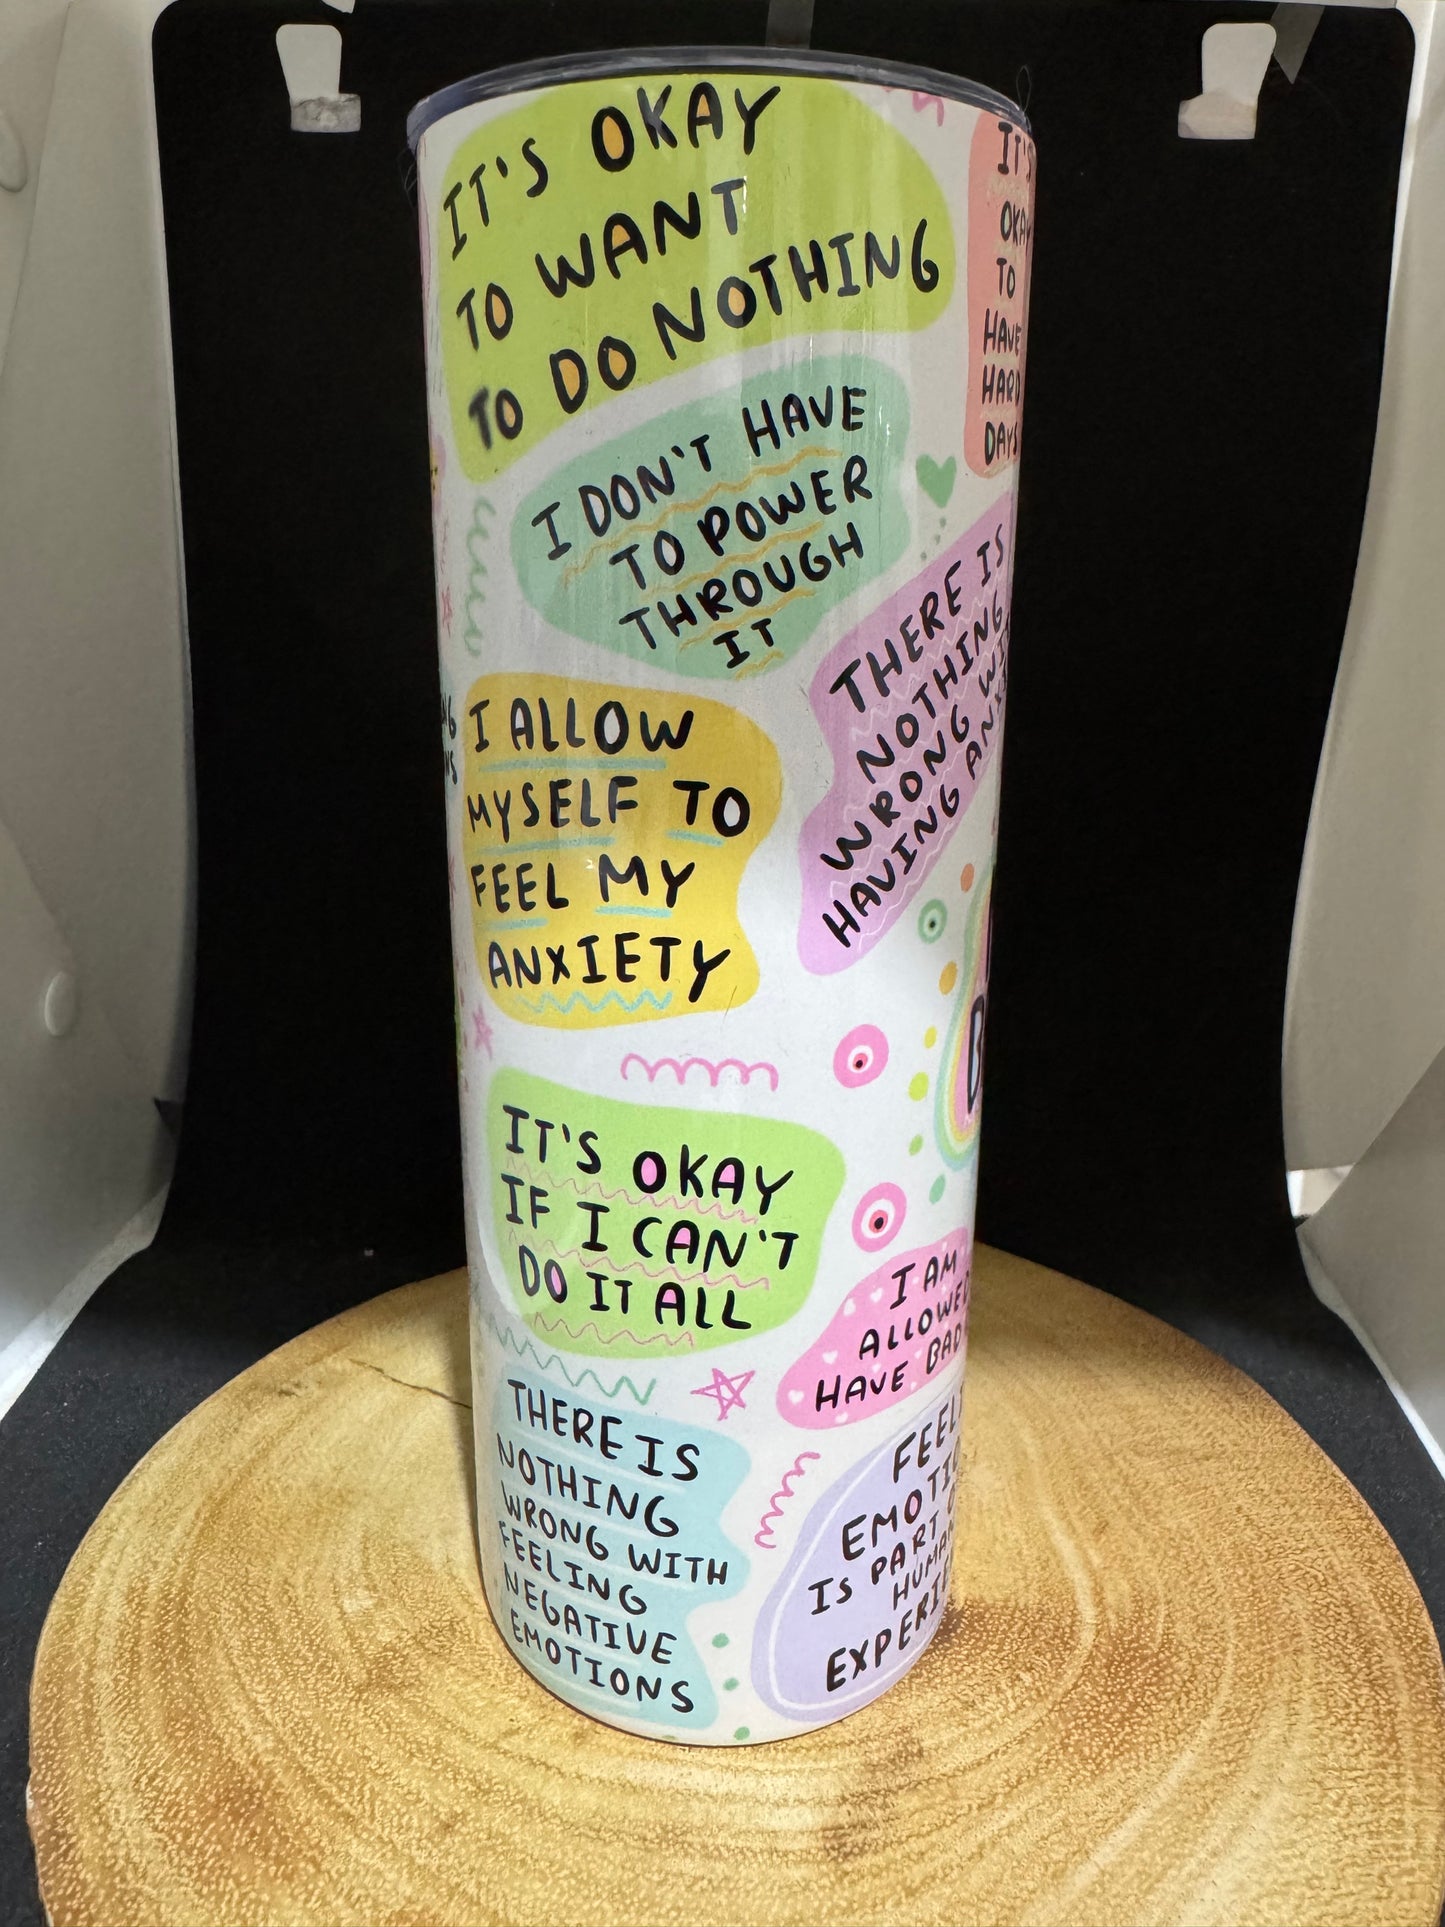 IT'S OKAY
TO WANT
TO DO NOTHING
IT'S
OKAY
TO
HAVE
HARD
DAYS
I DON'T HAVE
TO POWER
THROUGH
IT
THERE IS
NOTHING
WRONG
HAVING
I ALLOW
MYSELF TO
FEEL MY
ANXIETY
IT'S OKAY
IF I CAN'T
DO IT ALL
I AM
ALLOWED
HAVE BAD
THERE IS
NOTHING
WRONG WITH
FEELING
NEGATIVE
EMOTIONS
IS PART